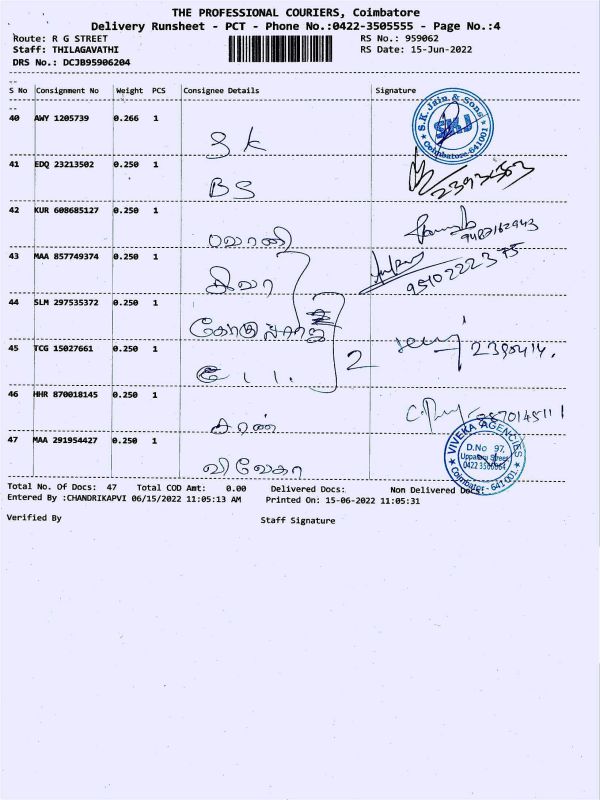 THE PROFESSIONAL COURIERS, Coimbatore
Delivery Runsheet - PCT - Phone No.:0422-3505555 - Page No.:4
Route: R G STREET RS No.: 959062
Staff: THILAGAVATHI RS Date: 15-Jun-2022
DRS No.: DCJB95906204
S No Consignment No Weight PCS Consignee Details Signature
40 AWY 1205739 0.266 1
S K
S.K. Jain & Sons
SKJ
Coimbatore-641001
41 EDQ 23213502 0.250 1
BS
42 KUR 608685127 0.250 1
43 MAA 857749374 0.250 1
9510222375
44 SLM 297535372 0.250 1
45 TCG 15027661 0.250 1
2
46 HHR 870018145 0.250 1
சரண்
VIVEKA AGENCIES
D.No 97,
Uppara Street
Coimbatore - 641 001.
47 MAA 291954427 0.250 1
விவேகா
Total No. Of Docs: 47 Total COD Amt: 0.00 Delivered Docs: Non Delivered Docs:
Entered By :CHANDRIKAPVI 06/15/2022 11:05:13 AM Printed On: 15-06-2022 11:05:31
Verified By Staff Signature